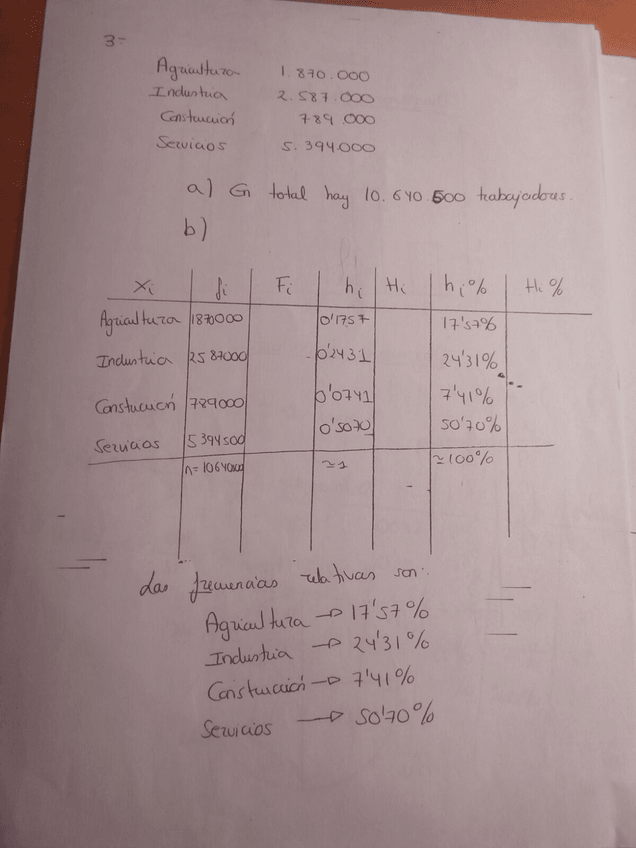 3-
Agricultura 1.870.000
Industria 2.587.000
Construcción 789.000
Servicios 5.394.000
a) En total hay 10.640.500 trabajadores.
b)
Xi fi Fi hi Hi hi% Hi%
Agricultura 1870000 0'1757 17'57%
Industria 2587000 0'2431 24'31%
Constucución 789000 0'0741 7'41%
Servicios 5394500 0'5070 50'70%
n=10640000 ≃1 ≃100%
Las frecuencias relativas son:
Agricultura → 17'57%
Industria → 24'31%
Construcción → 7'41%
Servicios → 50'70%